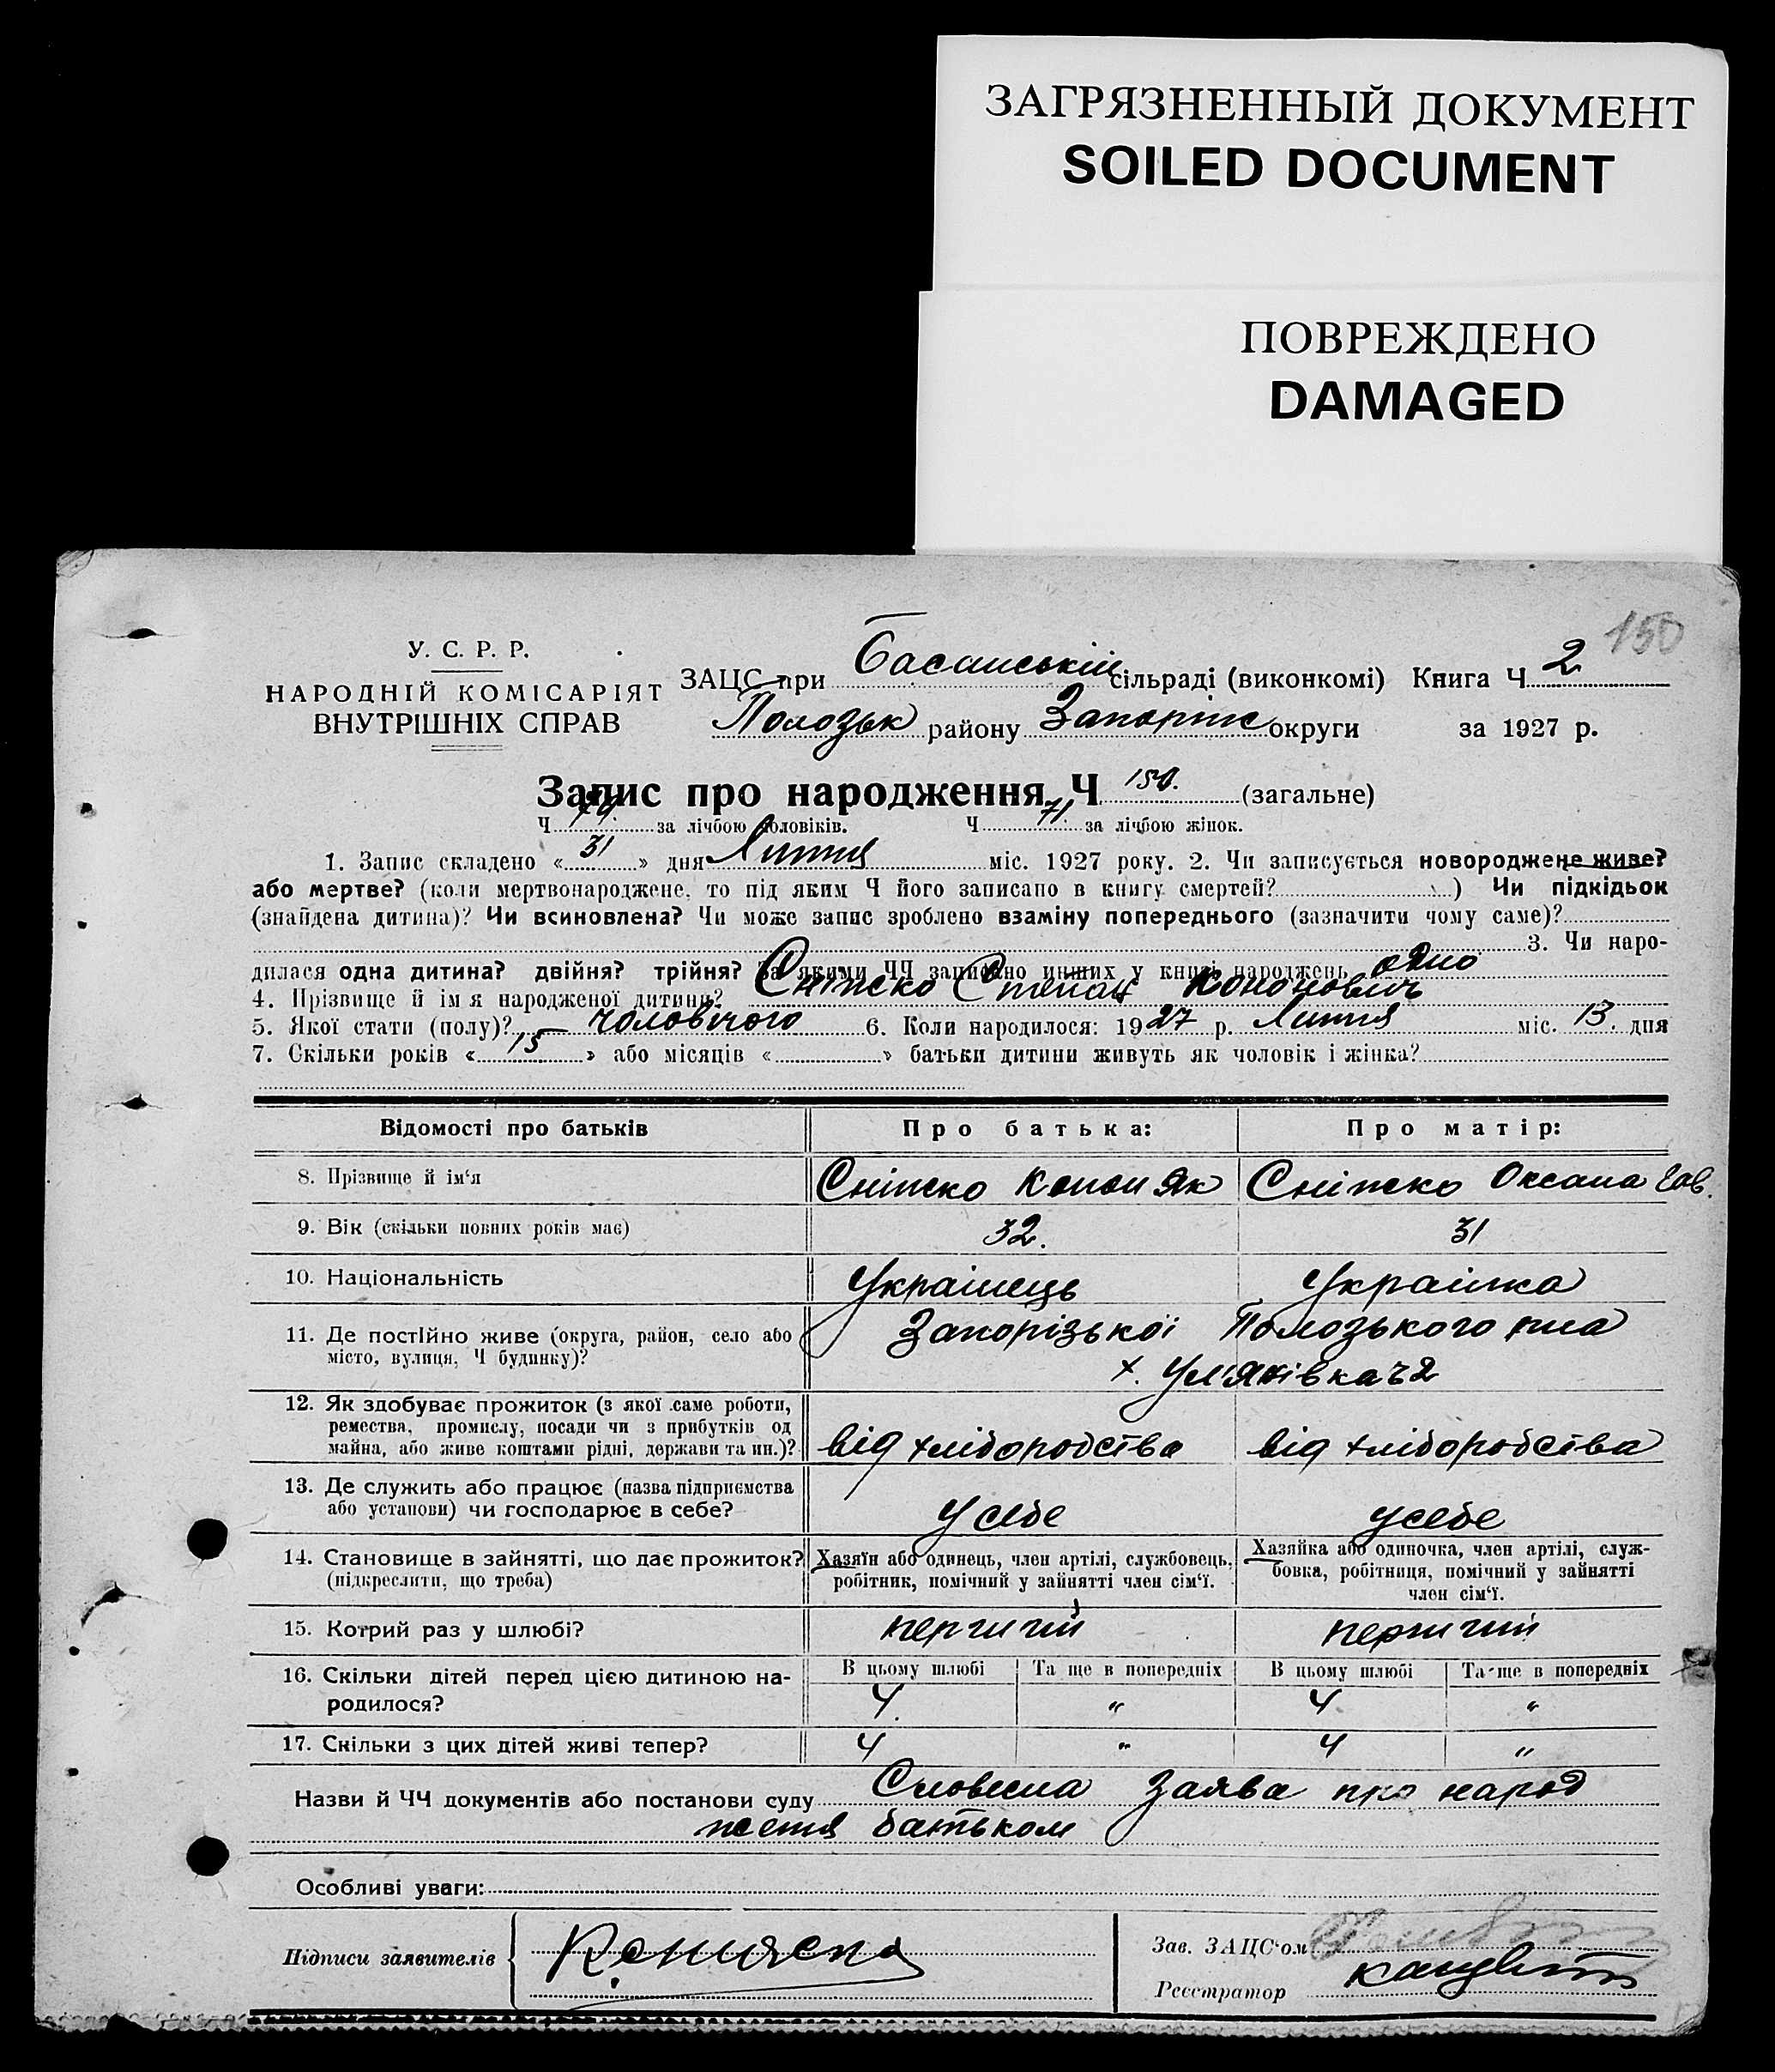 ЗАГРЯЗНЕННЫЙ ДОКУМЕНТ
SOILED DOCUMENT
ПОВРЕЖДЕНО
DAMAGED
150
У. С. Р. Р.
НАРОДНІЙ КОМІСАРІЯТ
ВНУТРІШНІХ СПРАВ
ЗАЦС при Басанській сільраді (виконкомі) Книга Ч 2
Полозьк району Запоріж округи за 1927 р.
Запис про народження Ч 150. (загальне)
Ч 79. за лічбою чоловіків. Ч 71. за лічбою жінок.
1. Запис складено « 31 » дня Липня міс. 1927 року. 2. Чи записується новороджене живе?
або мертве? (коли мертвонароджене, то під яким Ч його записано в книгу смертей? ) Чи підкідьок
(знайдена дитина)? Чи всиновлена? Чи може запис зроблено взаміну попереднього (зазначити чому саме)?
3. Чи наро-
дилася одна дитина? двійня? трійня? За якими ЧЧ записано инших у книзі народжень одно
4. Прізвище й ім'я народженої дитини? Сніжко Степан Кононович
5. Якої стати (полу)? чоловічого 6. Коли народилося: 1927 р. Липня міс. 13. дня
7. Скільки років « 15 » або місяців « » батьки дитини живуть як чоловік і жінка?
Відомості про батьків Про батька: Про матір:
8. Прізвище й ім'я Сніжко Конон Як Сніжко Оксана Гав.
9. Вік (скільки повних років має) 32. 31
10. Національність Українець Українка
11. Де постійно живе (округа, район, село або Запорізької Полозького р-на
місто, вулиця, Ч будинку)? х. Ул'янівка ч 2
12. Як здобуває прожиток (з якої саме роботи,
ремества, промислу, посади чи з прибутків од
майна, або живе коштами рідні, держави та ин.)? від хліборобства від хліборобства
13. Де служить або працює (назва підприємства
або установи) чи господарює в себе? у себе у себе
14. Становище в зайнятті, що дає прожиток? Хазяїн або одинець, член артілі, службовець, Хазяйка або одиночка, член артілі, служ-
(підкреслити, що треба) робітник, помічний у зайнятті член сім'ї. бовка, робітниця, помічний у зайнятті
член сім'ї.
15. Котрий раз у шлюбі? перший перший
16. Скільки дітей перед цією дитиною на- В цьому шлюбі Та ще в попередніх В цьому шлюбі Та ще в попередніх
родилося? 4. " 4 "
17. Скільки з цих дітей живі тепер? 4 " 4 "
Назви й ЧЧ документів або постанови суду Словесна Заява про народ
ження батьком
Особливі уваги:
Підписи заявителів Зав. ЗАЦС'ом
Реєстратор